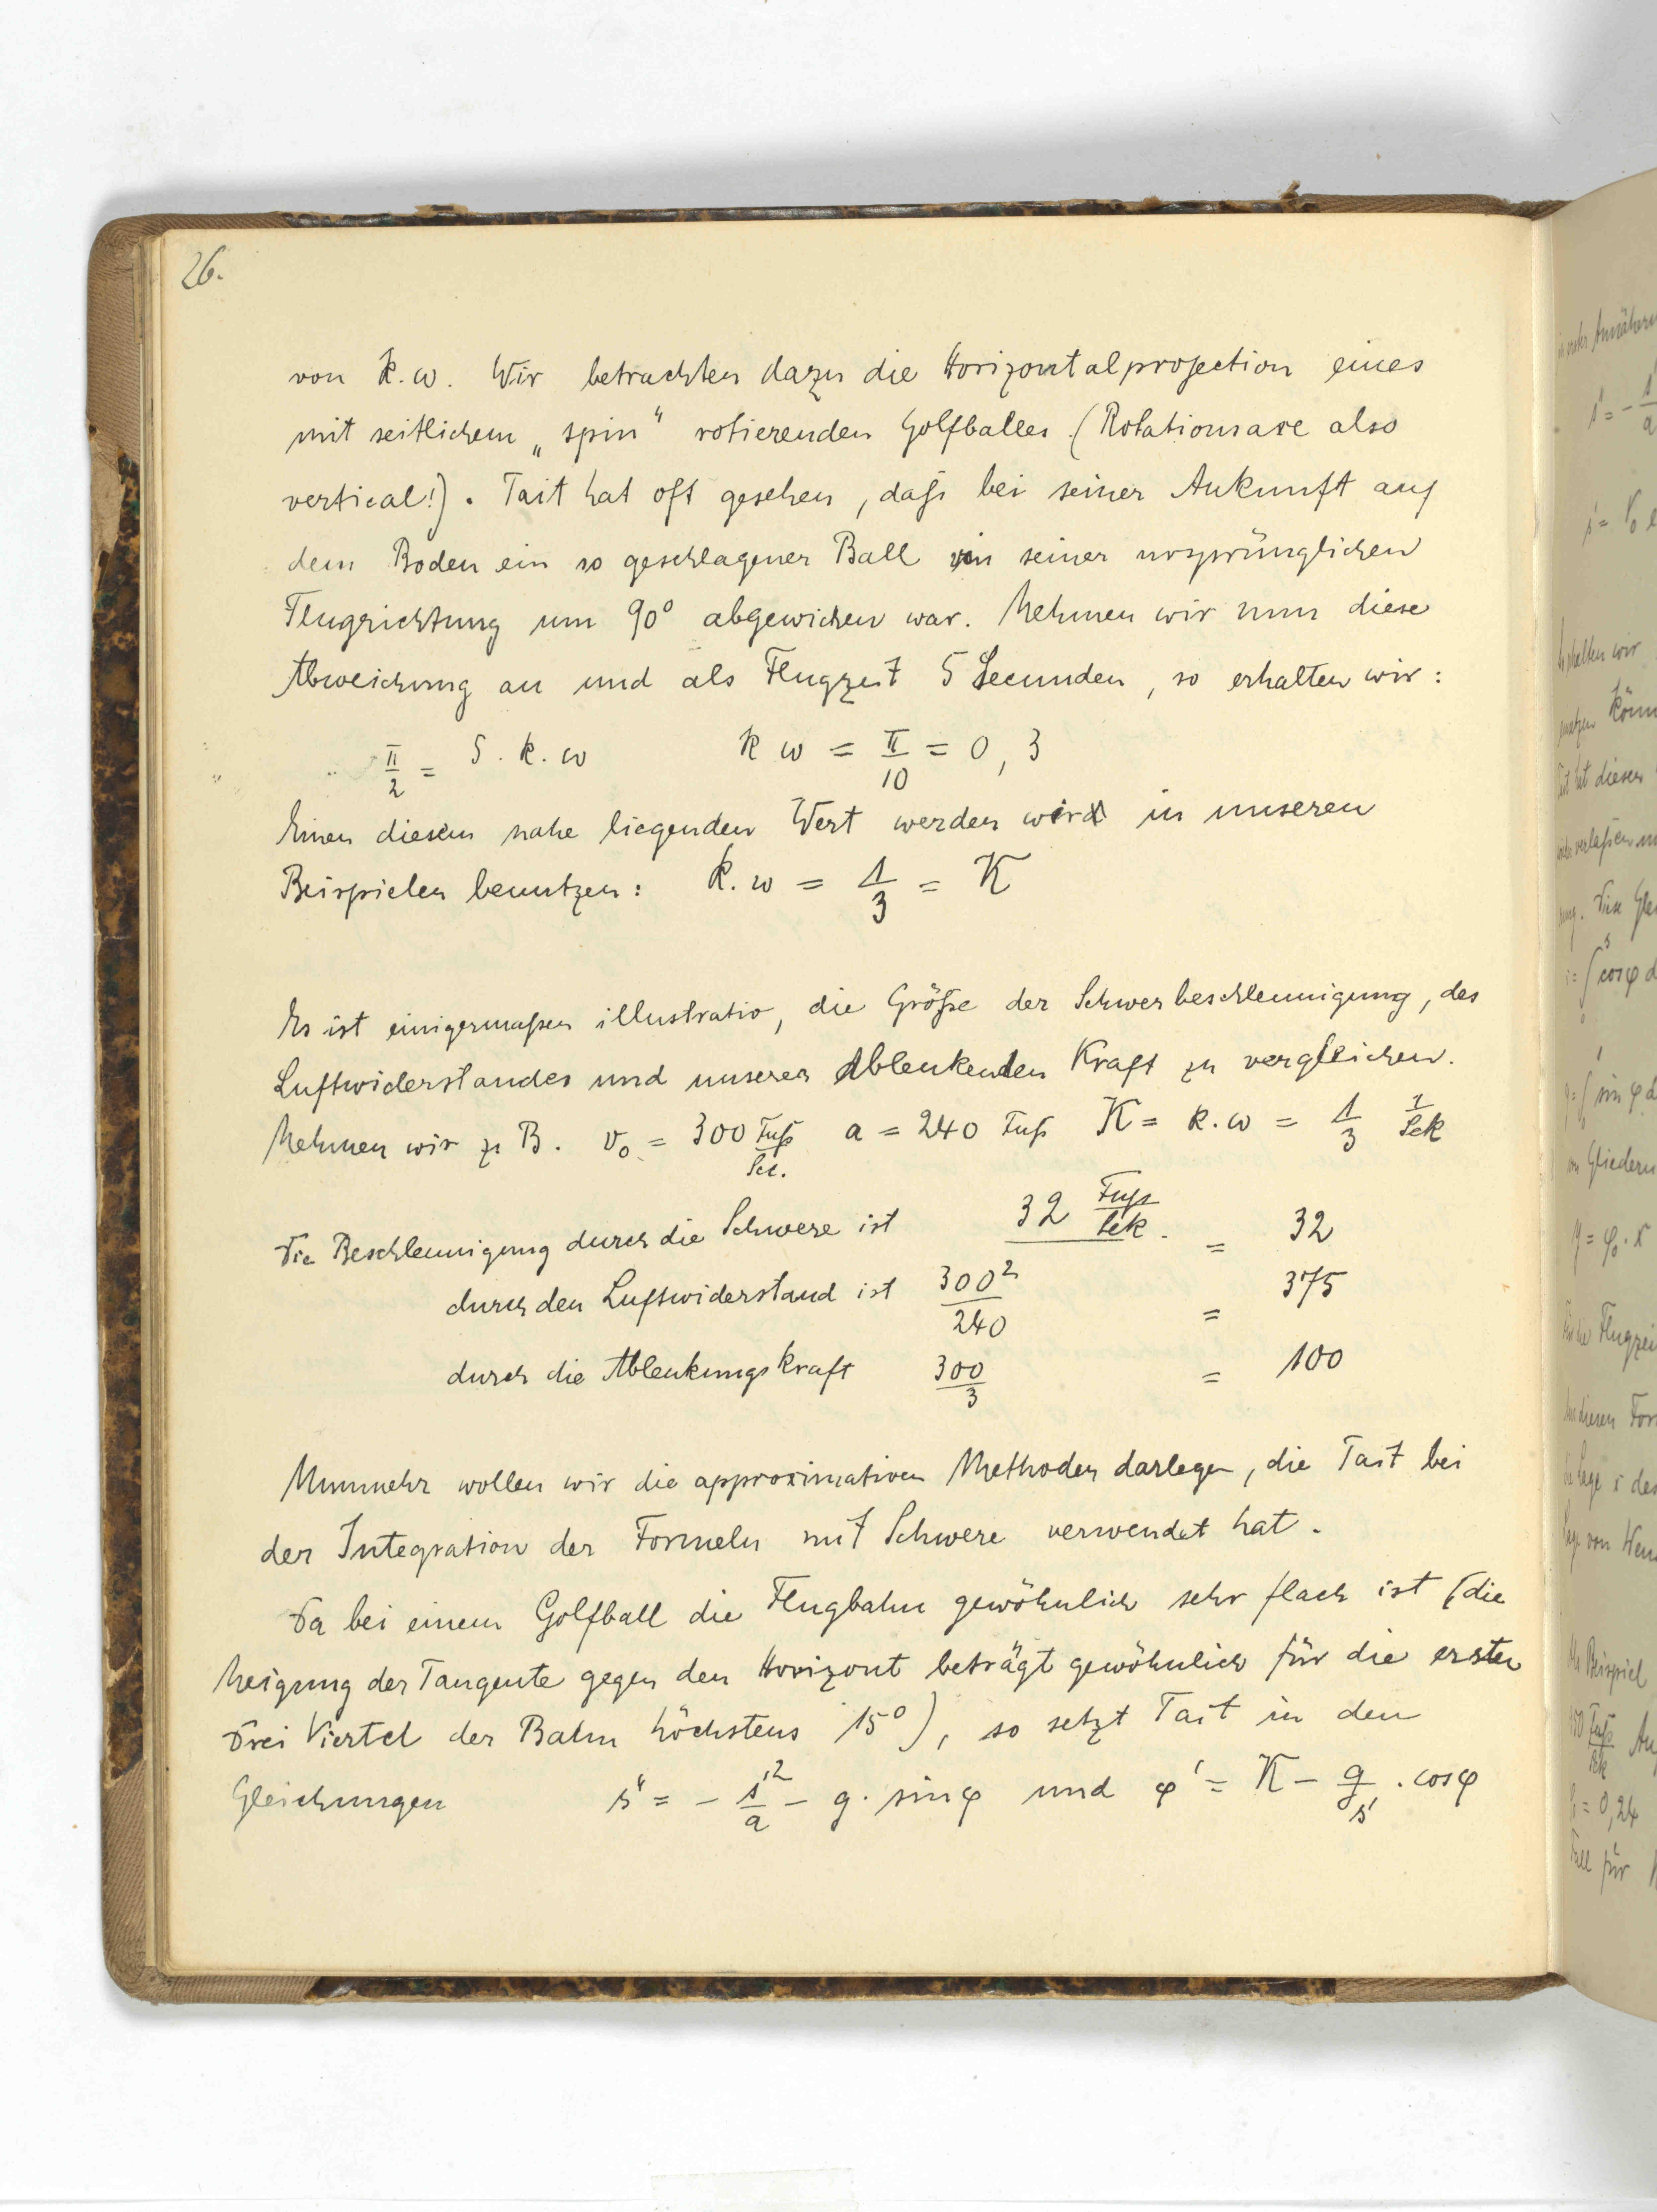 26.
von k.ω. Wir betrachten dazu die Horizontalprojection eines
mit seitlichem „spin“ rotierenden Golfballes. (Rotationsaxe also
vertical!). Tait hat oft gesehen, daß bei seiner Ankunft auf
dem Boden ein so geschlagener Ball von seiner ursprünglichen
Flugrichtung um 90° abgewichen war. Nehmen wir nun diese
Abweichung an und als Flugzeit 5 Secunden, so erhalten wir:
π/2 = 5.k.ω kω = π/10 = 0,3
Einen diesem nahe liegenden Wert werden wir in unseren
Beispielen benutzen: k.ω = 1/3 = K
Es ist einigermaßen illustrativ, die Größe der Schwerbeschleunigung, des
Luftwiderstandes und unserer Ablenkenden Kraft zu vergleichen.
Nehmen wir z B. v₀ = 300 Fuß/Sec. a = 240 Fuß K = k.ω = 1/3 1/Sek
Die Beschleunigung durch die Schwere ist 32 Fuß/Sek. = 32
durch den Luftwiderstand ist 300²/240 = 375
durch die Ablenkungskraft 300/3 = 100
Nunmehr wollen wir die approximativen Methoden darlegen, die Tait bei
der Integration der Formeln mit Schwere verwendet hat.
Da bei einem Golfball die Flugbahn gewöhnlich sehr flach ist (die
Neigung der Tangente gegen den Horizont beträgt gewöhnlich für die ersten
Drei Viertel der Bahn höchstens 15°), so setzt Tait in den
Gleichungen s'' = - s'²/a - g. sin φ und φ' = K - g/s' . cos φ